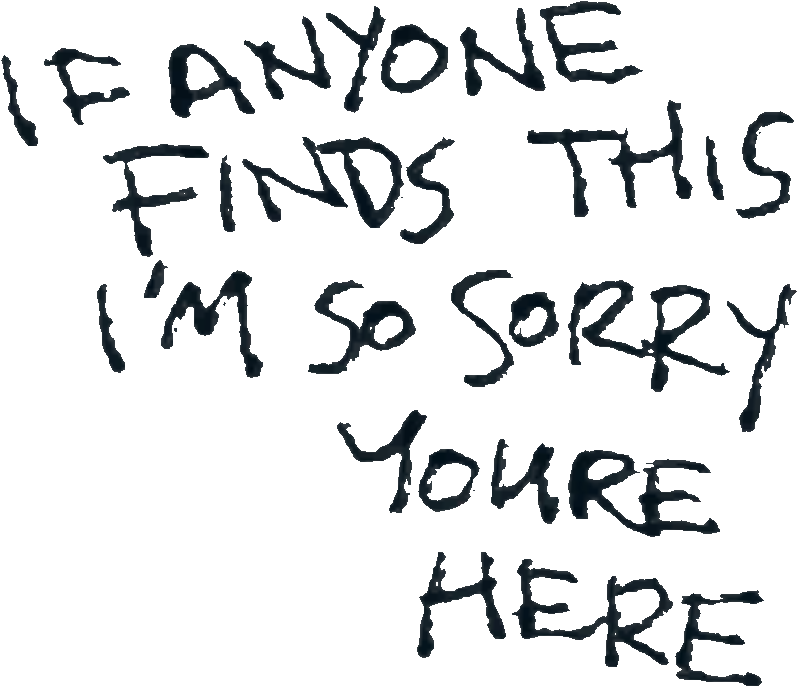 IF ANYONE
FINDS THIS
I'M SO SORRY
YOURE
HERE